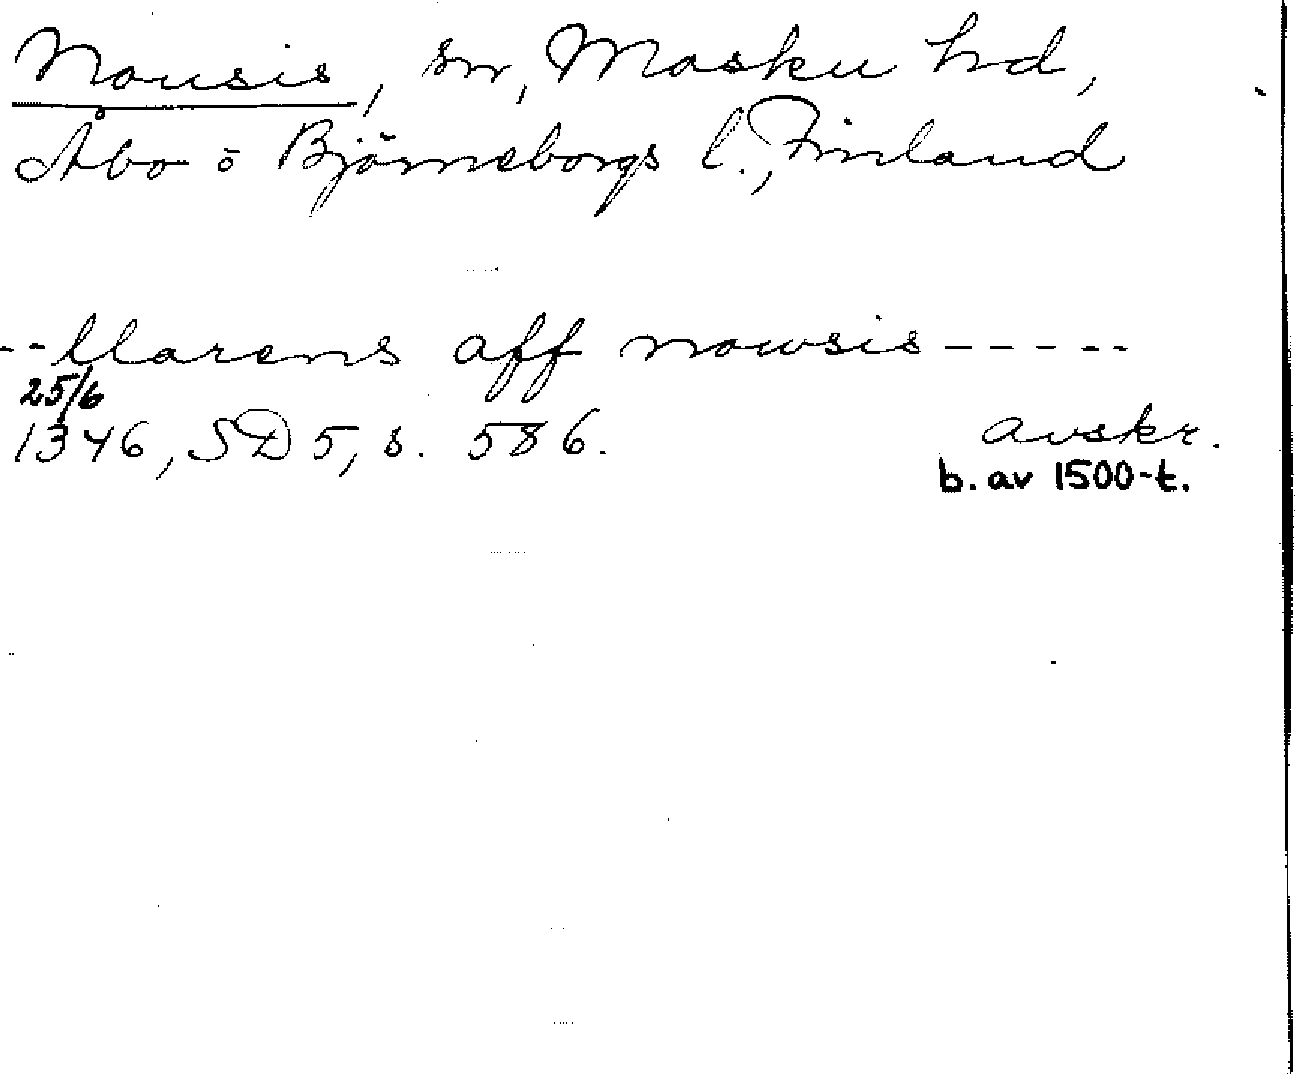 Nousis, sn, Masku hd,
Åbo o Björneborgs l., Finland
--llarens aff nowsis-----
25/6
1346, SD 5, s. 586. avskr.
b. av 1500-t.